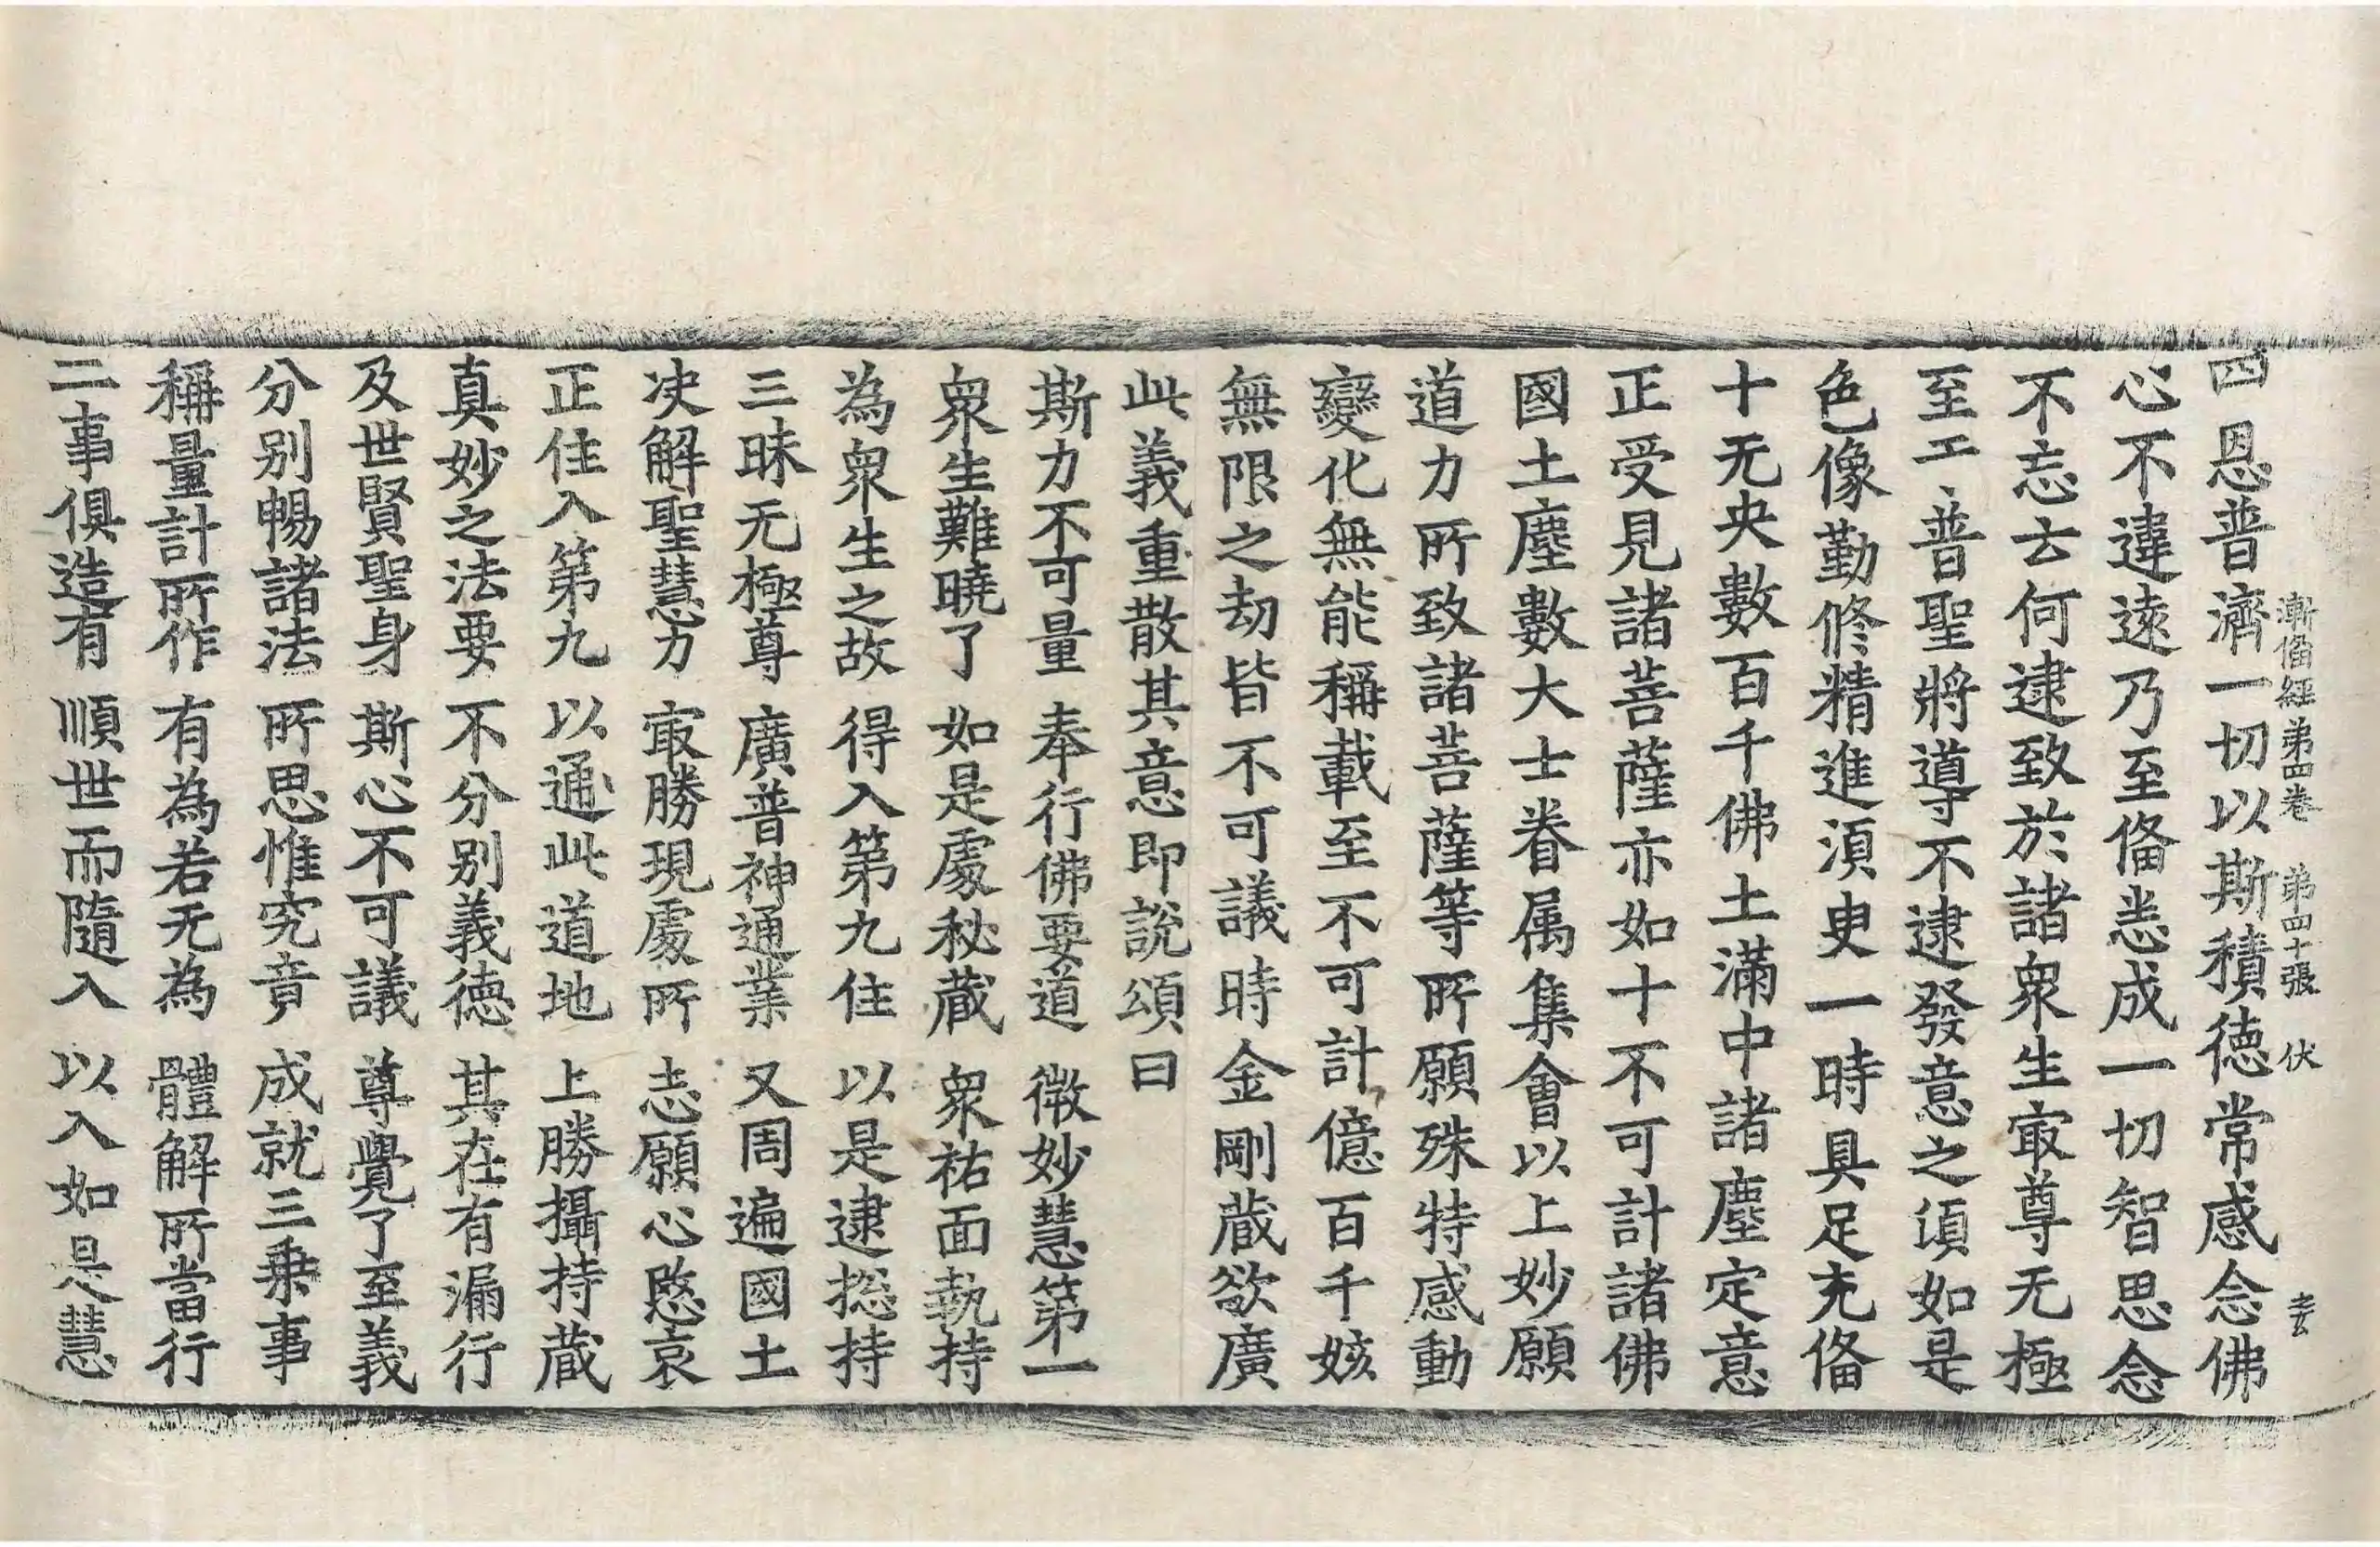 漸俻經第四卷 第四十張 伏
四恩普濟一切以斯積徳常感念佛
心不違遠乃至俻悉成一切智思念
不忘去何逮致於諸衆生㝡尊无極
至工普聖將導不逮發意之頃如是
色像勤修精進湏㬰一時具足充俻
十无央數百千佛土滿中諸塵定意
正受見諸菩薩亦如十不可計諸佛
國土塵數大士眷属集會以上妙願
道力所致諸菩薩等所願殊特感動
變化無能稱載至不可計億百千姟
無限之劫皆不可議時金剛蔵欲廣
此義重散其意即說頌曰
斯力不可量 奉行佛要道 微妙慧第一
衆生難曉了 如是處秘蔵 衆祐面執持
為衆生之故 得入第九住 以是逮揔持
三昧无極尊 廣普神通業 又周遍國土
决解聖慧力 㝡勝現處所 志願心愍哀
正住入第九 以通此道地 上勝攝持蔵
真妙之法要 不分别義徳 其在有漏行
及世賢聖身 斯心不可議 尊覺了至義
分别暢諸法 所思惟究竟 成就三乗事
稱量計所作 有為若无為 體解所當行
二事俱造有 順世而隨入 以入如是慧